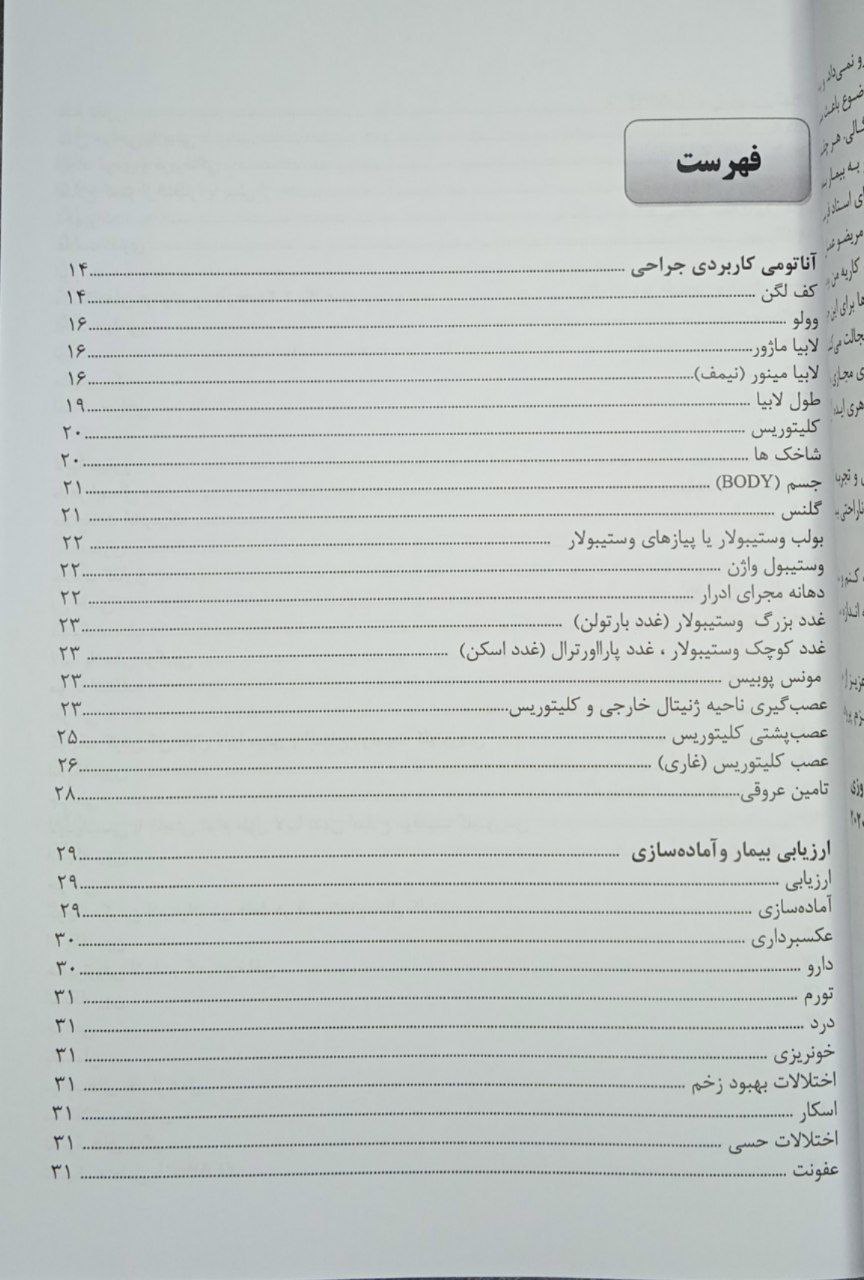 فهرست
آناتومی کاربردی جراحی ........ ۱۴
کف لگن ........ ۱۴
وولو ........ ۱۶
لابیا ماژور ........ ۱۶
لابیا مینور (نیمف) ........ ۱۶
طول لابیا ........ ۱۹
کلیتوریس ........ ۲۰
شاخک ها ........ ۲۰
جسم (BODY) ........ ۲۱
گلنس ........ ۲۱
بولب وستیبولار یا پیازهای وستیبولار ........ ۲۲
وستیبول واژن ........ ۲۲
دهانه مجرای ادرار ........ ۲۲
غدد بزرگ وستیبولار (غدد بارتولن) ........ ۲۳
غدد کوچک وستیبولار ، غدد پارااورترال (غدد اسکن) ........ ۲۳
مونس پوبیس ........ ۲۳
عصب‌گیری ناحیه ژنیتال خارجی و کلیتوریس ........ ۲۳
عصب‌پشتی کلیتوریس ........ ۲۵
عصب کلیتوریس (غاری) ........ ۲۶
تامین عروقی ........ ۲۸
ارزیابی بیمار و آماده‌سازی ........ ۲۹
ارزیابی ........ ۲۹
آماده‌سازی ........ ۲۹
عکسبرداری ........ ۳۰
دارو ........ ۳۰
تورم ........ ۳۱
درد ........ ۳۱
خونریزی ........ ۳۱
اختلالات بهبود زخم ........ ۳۱
اسکار ........ ۳۱
اختلالات حسی ........ ۳۱
عفونت ........ ۳۱